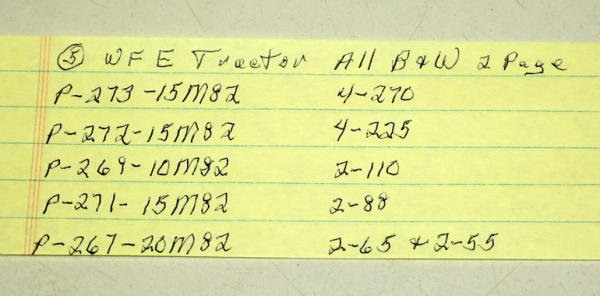 ⑤ WFE Tractor All B&W 2 Page
P-273-15M82 4-270
P-272-15M82 4-225
P-269-10M82 2-110
P-271-15M82 2-88
P-267-20M82 2-65 & 2-55